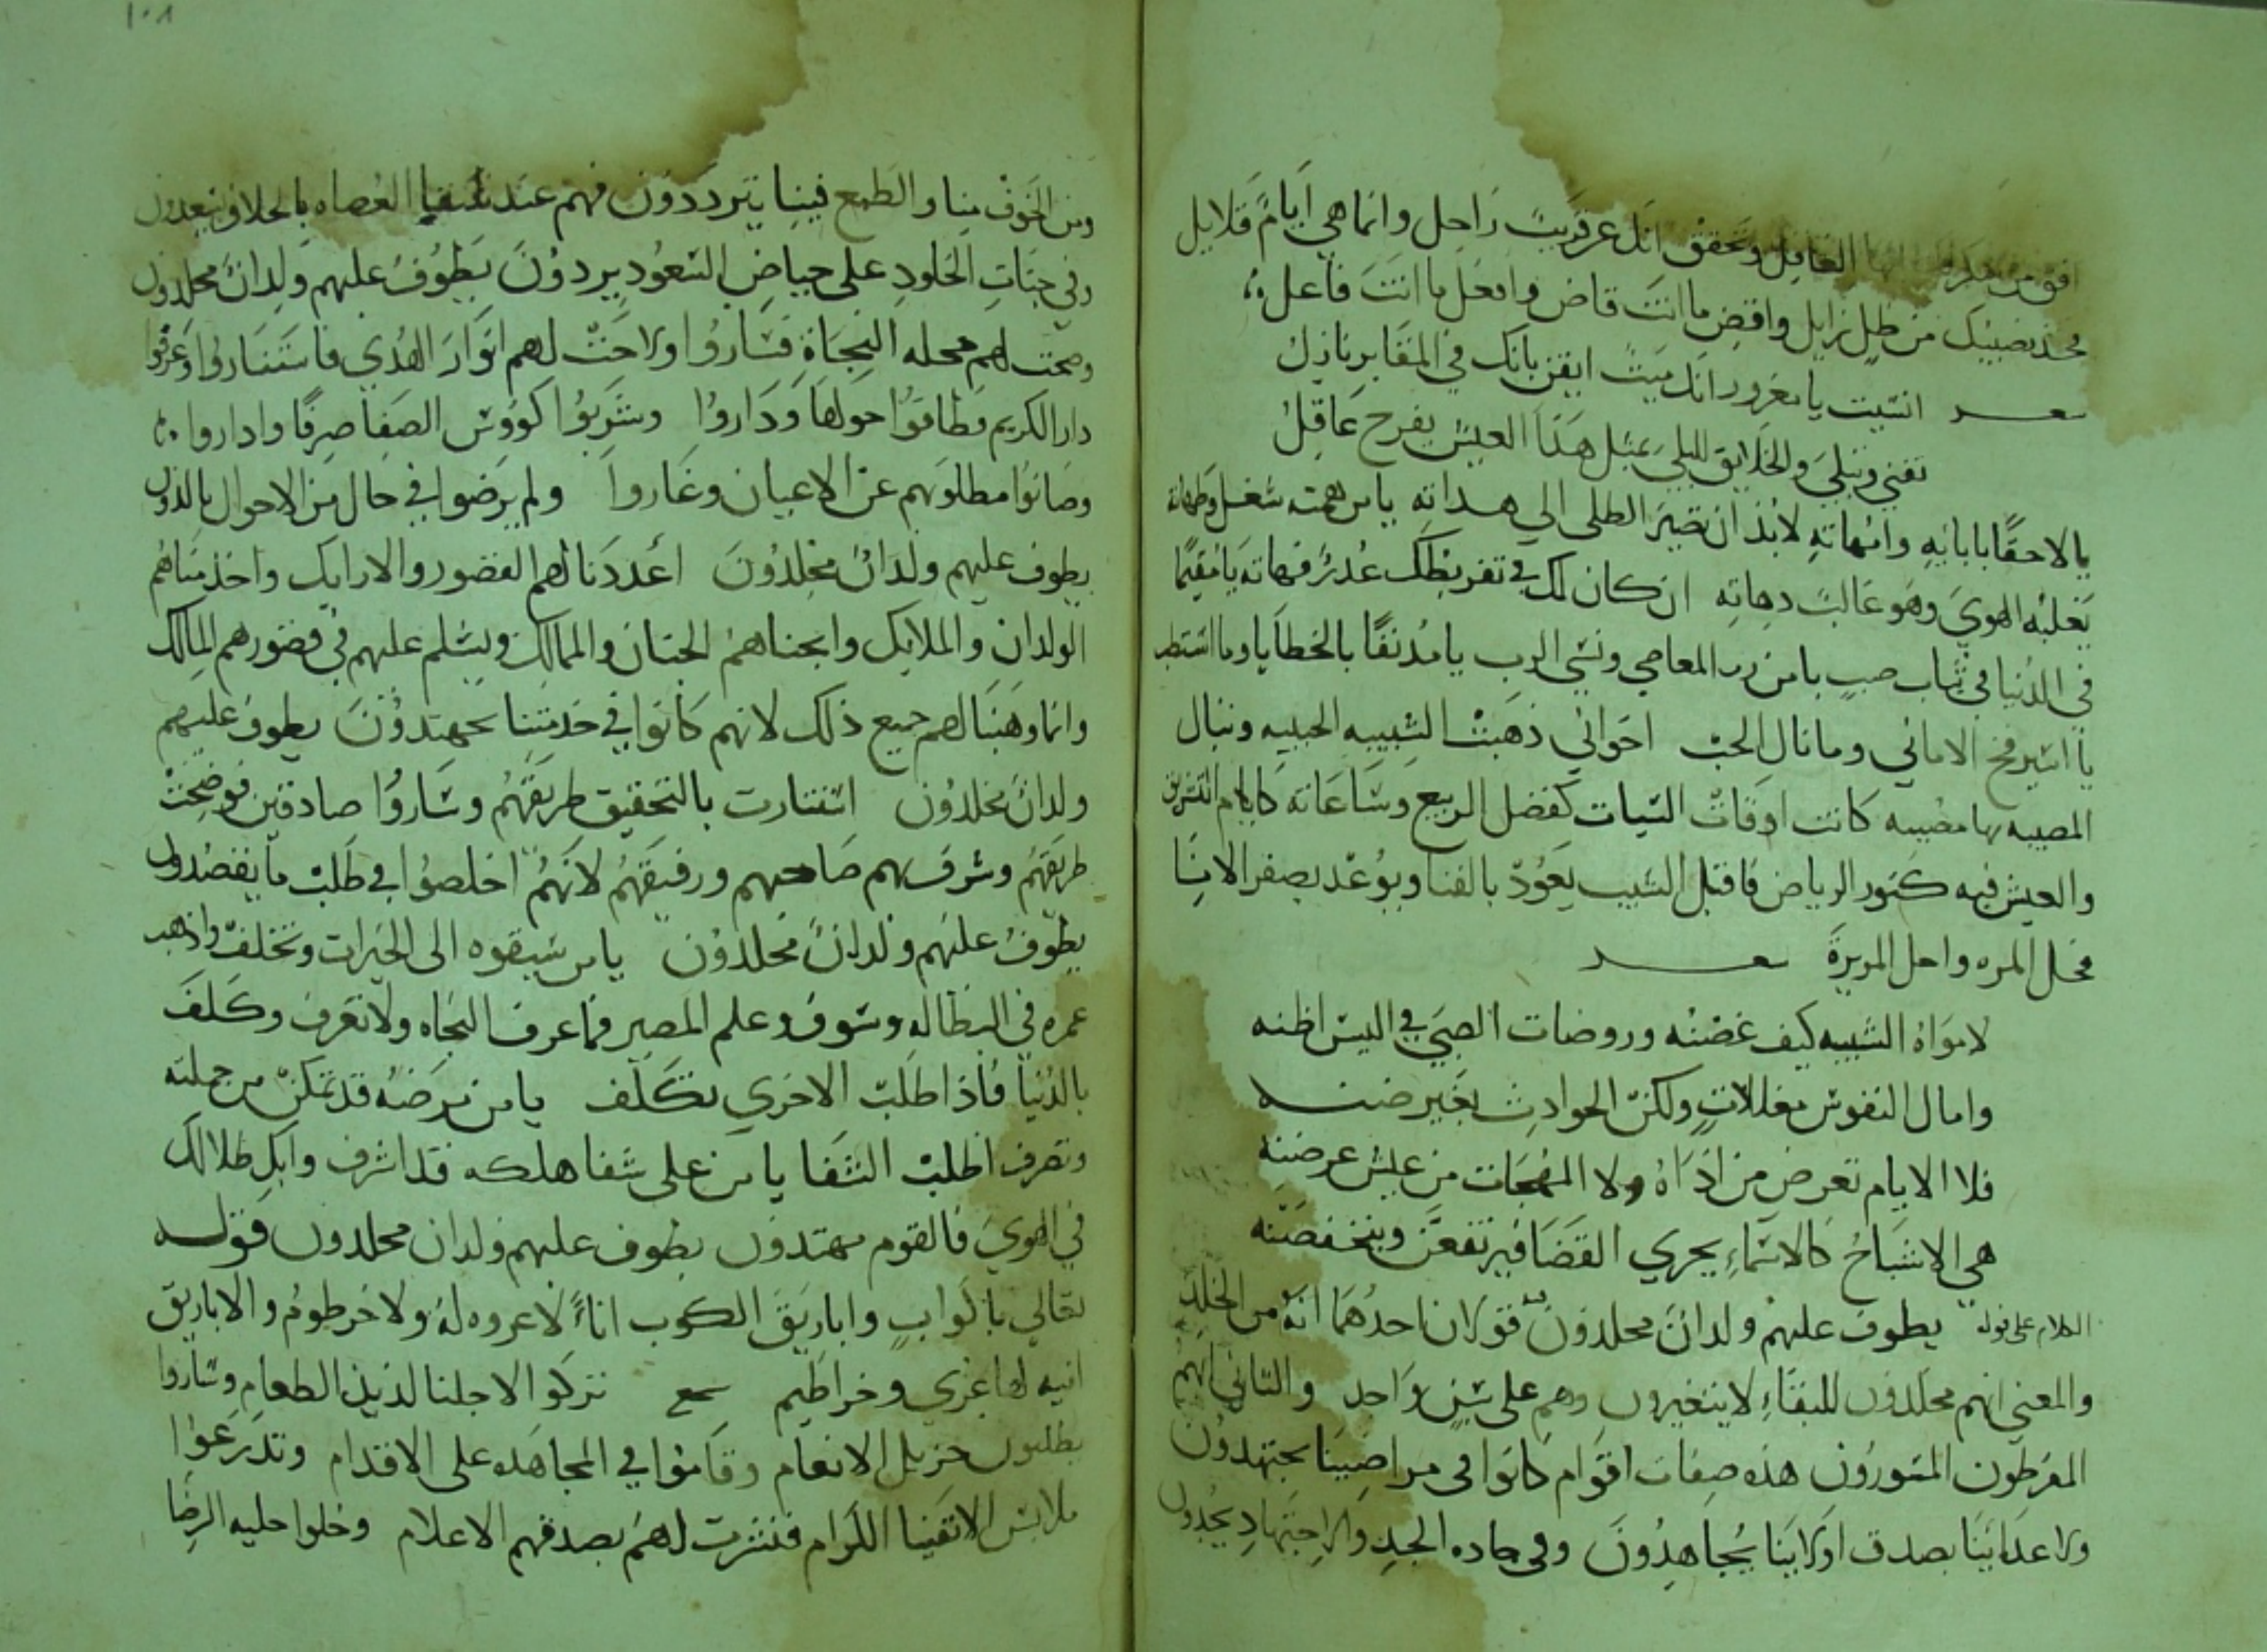 افق من الغافل وتحقق انك عن قريب راحل وانما هي ايام قلايل
فخذ نصيبك من ظل زايل واقض ما انت قاض وافعل ما انت فاعل
شعر انسيت يا مغرور انك ميت ايقن بانك في المقابر نازل
تفني وتبلي والخلايق للبلي بمثل هذا العيش يفرح عاقل
يا لاحقا بابايه وامهاته لابد ان تصير الطلي الي يا من همته شغل
يغلبه الهوي وهو غالب ان كان لك في تفريطك عذر فهاته يا مقيما
في الدنيا في ثياب صب يا من المعاصي ونسي الرب يا مدنفا بالخطايا وما استطب
يا اسير فخ الاماني وما نال الحب اخواني ذهبت الشبيبه الحبيبه ونبال
المصيبه بها مصيبه كانت اوقات الشباب كفصل الربيع وساعاته كايام التشريق
والعيش فيه كنور الرياض فاقبل الشيب يعود بالفنا ويوعد بصفر الانا
فحل المره واحل المريرة شعر
الشبيبه كيف غضنه وروضات الصبي في اليبس اظنه
وامال النفوس معللات ولكن الحوادث بغير ضنه
فلا الايام تعرض من اذاه ولا المهجات من عيش عرضنه
هي الاشباح كالاسماء يجري القضا فيرتفعن ويخفضنه
الكلام على قوله يطوف عليهم ولدان مخلدون فقولان احدهما انه من الخلد
والمعني انهم مخلدون للبقاء لا يتغيرون وهم على سن واحد والثاني انهم
المقرطون المسورون هذه صفات اقوام كانوا في مراضينا يجتهدون
ولاعداينا بصدق ولاينا يجاهدون وفي جاده الجد والاجتهاد يجدون
ومن الخوف منا والطمع فينا يترددون فهم عند العصاه بالخلاف يبعدون
وفي جنات الخلود على حياض السعود يردون يطوف عليهم ولدان مخلدون
وضحت لهم محجه النجاة فساروا ولاحت لهم انوار الهدي فاستناروا وعرفوا
دار الكريم فطافوا حولها وداروا وشربوا كؤوس الصفا صرفا واداروا
وصانوا مطلوبهم عن الاعيان وغاروا ولم يرضوا في حال من الاحوال بالدون
يطوف عليهم ولدان مخلدون اعددنا لهم القصور والارايك واخدمناهم
الولدان والملايك وابحناهم الجنان والممالك ويسلم عليهم في قصورهم المالك
وانما وهبنا لهم جميع ذلك لانهم كانوا في خدمتنا يجتهدون يطوف عليهم
ولدان مخلدون استنارت بالتحقيق طريقهم وساروا صادقين فوضحت
طريقهم وشرف بهم صاحبهم ورفيقهم لانهم اخلصوا في طلب ما يقصدون
يطوف عليهم ولدان مخلدون يا من سبقوه الى الخيرات وتخلف واذهب
عمره في البطاله وسوف وعلم المصير فما عرف النجاه ولا تعرف وكلف
بالدنيا فاذا طلب الاخري تكلف يا من مرضه قد تمكن من جملته
وتصرف اطلب الشفا يا من على شفا هلكه قد اشرف وابك ضلالك
في الهوي فالقوم مهتدون يطوف عليهم ولدان مخلدون قوله
تعالي باكواب واباريق الكوب اناء لا عروه له ولا خرطوم والاباريق
انيه لها عري وخراطيم سجع تركوا لاجلنا لذيذ الطعام وساروا
يطلبون جزيل الانعام وقاموا في المجاهده على الاقدام وتدرعوا
ملابس الاتقيا الكرام فنشرت لهم بصدقهم الاعلام وحلوا حليه الرضا